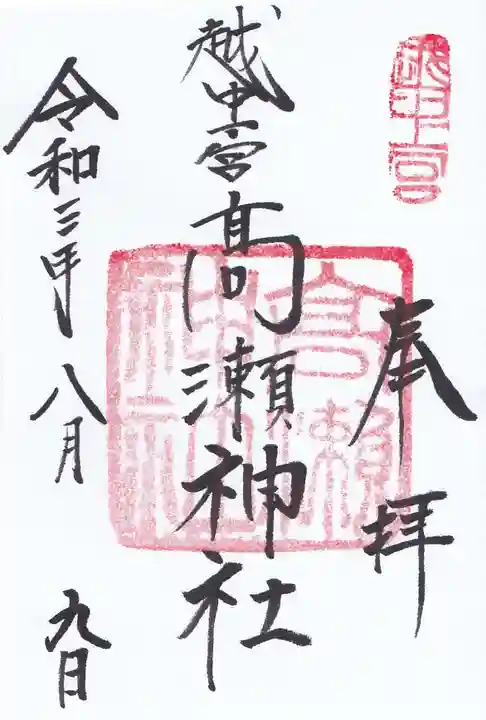 越中宮
奉拝
高瀬神社
越中宮髙瀬神社
令和三年八月九日